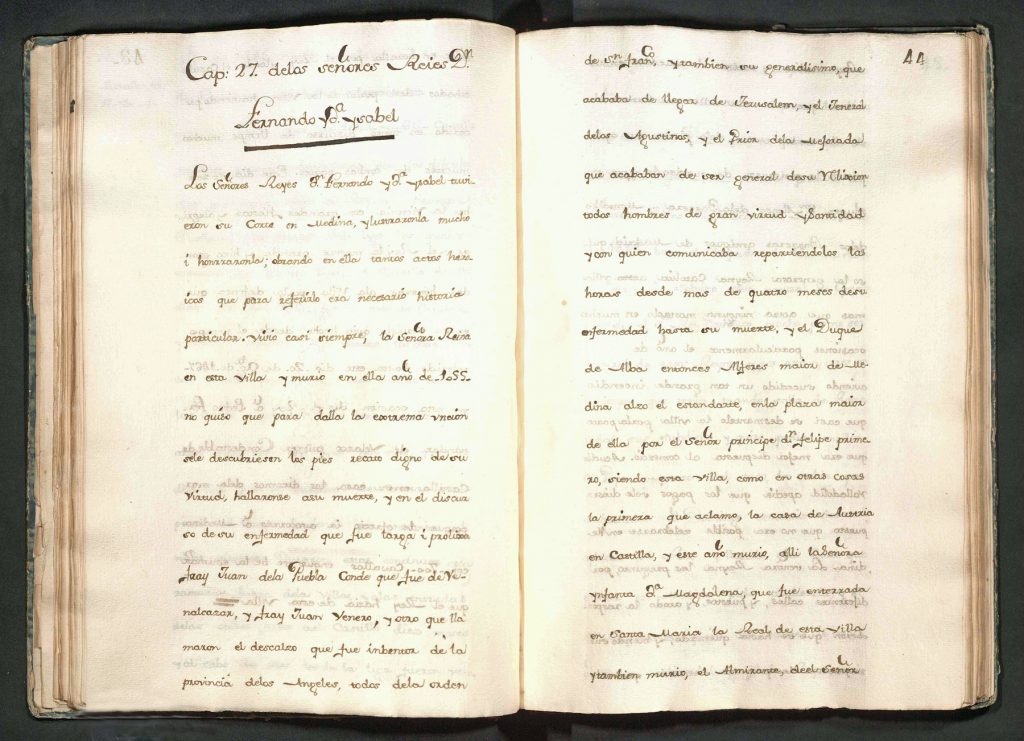 Cap: 27. delos señores Reies Dn.
Fernando y Da. Ysabel
Los Señores Reyes Dn. Fernando y Da. Ysabel tuvi-
eron su Corte en Medina, y lustraronla mucho
i honrraronla; obrando en ella tantos actos hero
icos que para referirlo era necesario historia
particular. vivio casi siempre, la Señora Reina
en esta villa y murio en ella año de 1055-
no quiso que para dalla la extrema uncion
sele descubriesen los pies recato digno de su
virtud, hallaronse asu muerte, y en el discur
so de su enfermedad que fue larga i prolixa
fray Juan dela Puebla Conde que fue de Ve-
nalcazar, y fray Juan Venero, y otro que lla
maron el descalzo que fue inbentor de la
provincia delos Angeles, todos dela orden
44
de Sn. franco, y tambien su generalisimo, que
acababa de llegar de Jerusalem, y el Jeneral
delos Agustinos, y el Prior dela Mejorada
que acababan de ser general desu
todos hombres de gran virtud y Santidad
y con quien comunicaba repartiendolos la
horas desde mas de quatro meses desu
enfermedad hasta su muerte, y el Duque
de Alba entonces Alferes maior de Me-
dina alzo el estandarte, enla plaza maior
de ella por el Señor principe dn. felipe prime
ro, siendo esta villa, como en otras casas
la primera que aclamo, la casa de Austria
en Castilla, y este año murio, alli la Señora
ynfanta Da. Magdalena, que fue enterrada
en Santa Maria la Real de esta villa
y tambien murio, el Almirante, de el Señor